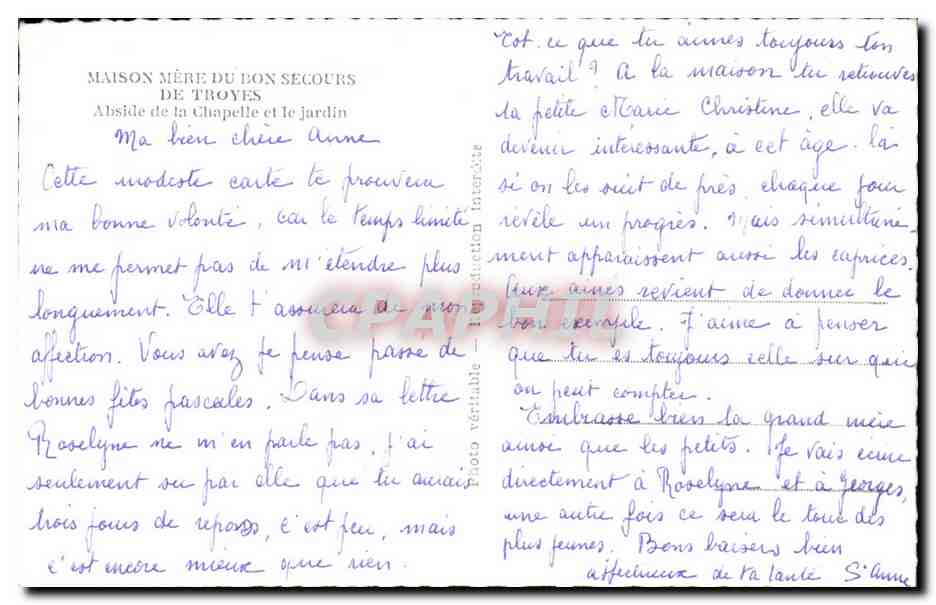 MAISON MÈRE DU BON SECOURS
DE TROYES
Abside de la Chapelle et le jardin
Ma bien chère Anne
Cette modeste carte te prouvera
ma bonne volonté, car le temps limité
ne me permet pas de m'étendre plus
longuement. Elle t'assurera de mon
affection. Vous avez je pense passé de
bonnes fêtes pascales. Dans sa lettre
Roselyne ne m'en parle pas, j'ai
seulement su par elle que tu aurais
trois jours de repos, c'est peu, mais
c'est encore mieux que rien.
Photo véritable - Reproduction interdite
CPAPHIL
Est-ce que tu aimes toujours ton
travail ? A la maison tu retrouves
ta petite Marie Christine, elle va
devenir intéressante, à cet âge-là
si on les suit de près, chaque jour
révèle un progrès. Mais simultané-
ment apparaissent aussi les caprices.
Aux aînés revient de donner le
bon exemple. J'aime à penser
que tu es toujours celle sur qui
on peut compter.
Embrasse bien ta grand mère
ainsi que les petits. Je vais écrire
directement à Roselyne et à Georges,
une autre fois ce sera le tour des
plus jeunes. Bons baisers bien
affectueux de ta tante Sr Anne